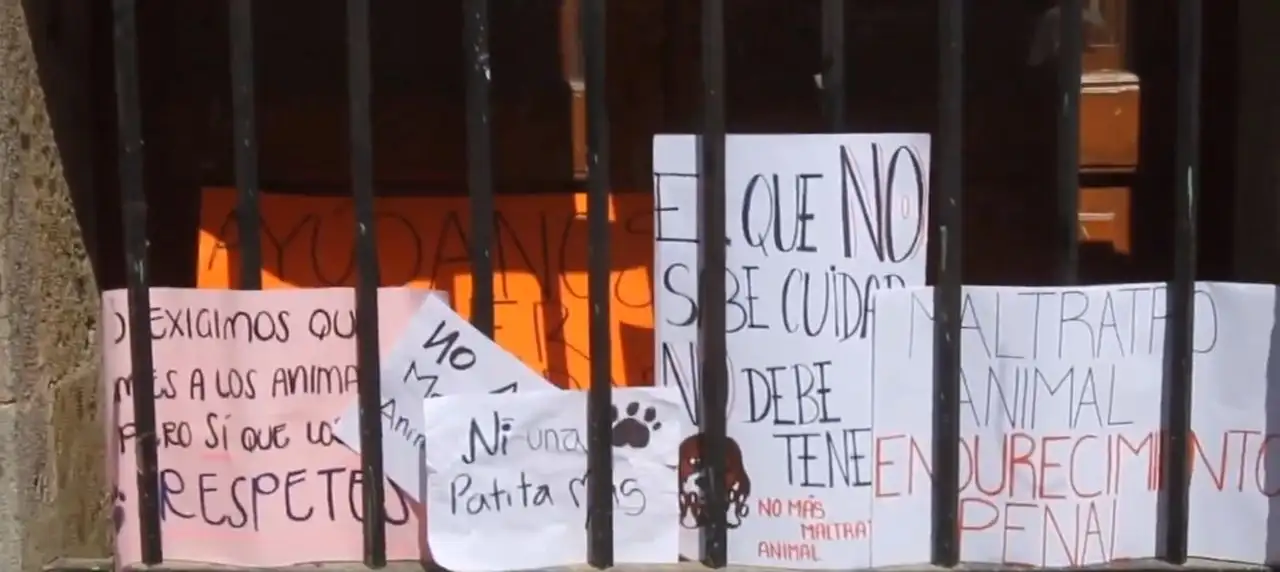 AYÚDANOS
EXIGIMOS QU
A LOS ANIMA
PERO SÍ QUE LO
RESPETE
NO
Ni una
Patita más
EL QUE NO
SABE CUIDAR
NO DEBE
TENE
NO MÁS
MALTRA
ANIMAL
MALTRATO
ANIMAL
ENDURECIMIENTO
PENAL